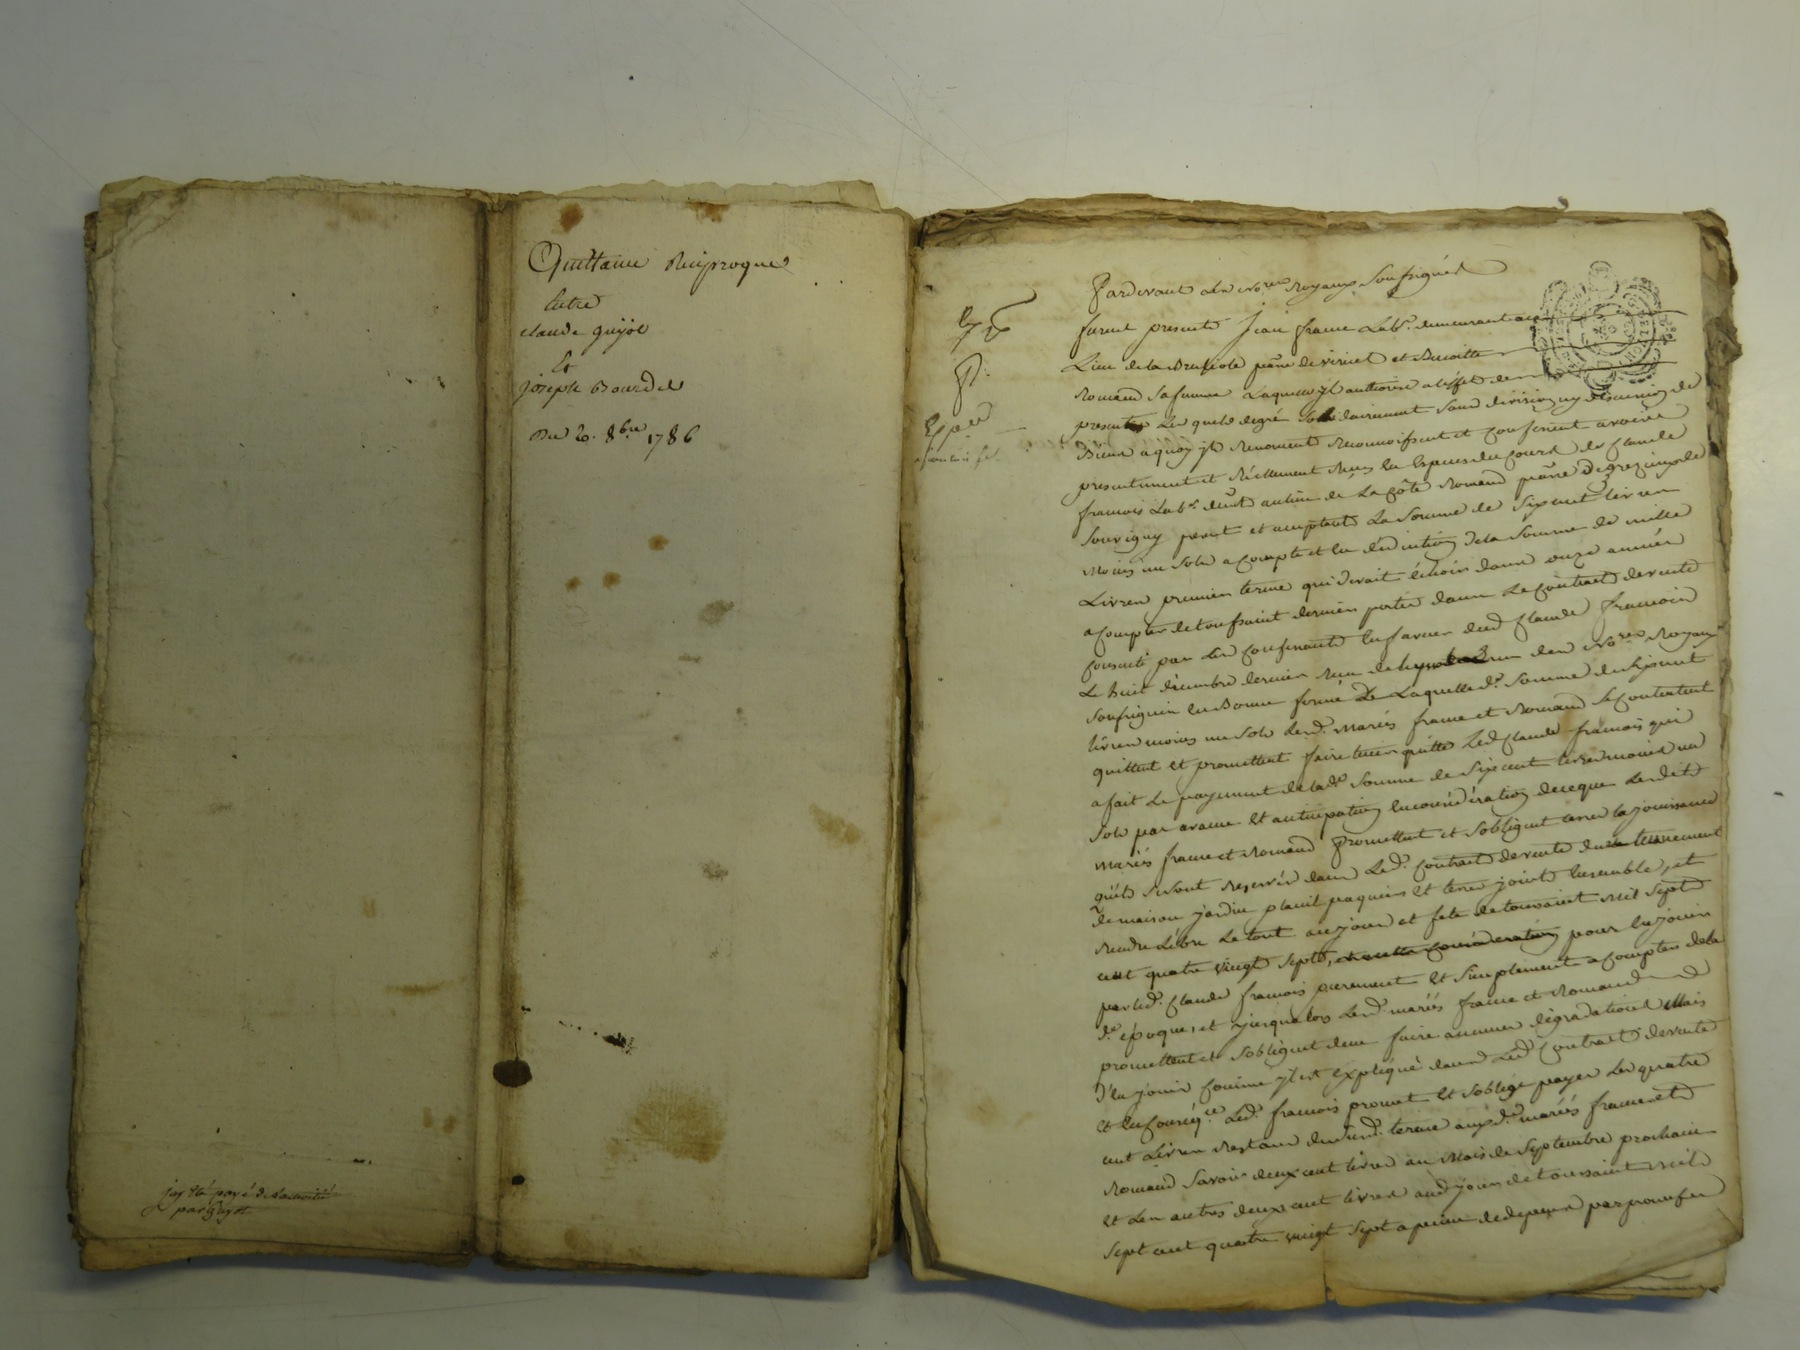 Quittance Reciproque
Entre
claude guijot
Et
joseph Bourdel
Du 20. 8bre 1786
jay été payé de la moitié
par Guyot
Pardevant Les nores Royaux Soussignés
furent presents Jean france Labr. demeurant au
Lieu de la Brussole parre de viricel et Benoitte
Romand sa femme Laquelle jl authorise a leffet des
presentes Lesquels degré solidairement sans division ny discution de
Biens a quoy jls renoncent reconnoissent et confessent avoir
presentement et réellement Reçu en Especes du Cours de Claude
francois Labr. demt au lieu de La Côte Romand parre de grezieu de
Souvigny pnt et acceptant La Somme de Six cent livres
Moins un Sols a compte et en déduction de la Somme de mille
Livres premier terme qui devait échoir dans onze années
a compter de toussaint dernier porté dans Le Contract de vente
consenti par Les Confessants en faveur dud Claude francois
Le huit décembre dernier Reçu des nores Royaux
Soussignés en Bonne forme de Laquelle de. Somme de Six cent
livres moins un Sols Lesd. mariés france et Romand se contentent
quittent et promettent faire tenir quitte Led Claude francois qui
a fait Le payement de lade Somme de Six cent livres moins un
Sols par avance et anticipation en considération de ce que Lesdits
mariés france et Romand promettent et sobligent cesser la jouissance
quils se sont reservés dans Led. Contract de vente du tennement
de maison jardin plassit paquiers et terre joints Ensemble, et
rendre Libre Le tout au jour et fete de toussaint mil Sept
cent quatre vingt Sept, en cette considération pour en jouir
par led. Claude francois purement et Simplement a compter de la
de époque, et jusqualors Lesd. mariés france et Romand
promettent et sobligent de ne faire aucunes dégradations Mais
den jouir Comme jl est Expliqué dans Led Contract de vente
et en Conséqce Led. francois promet et soblige payer Les quatre
cent Livres Restans dud. terme auxd. mariés france et
Romand Savoir deux cent livres au Mois de Septembre prochain
et Les autres deux cent livres aud jour de toussaint mil
Sept cent quatre vingt Sept a peine de depens